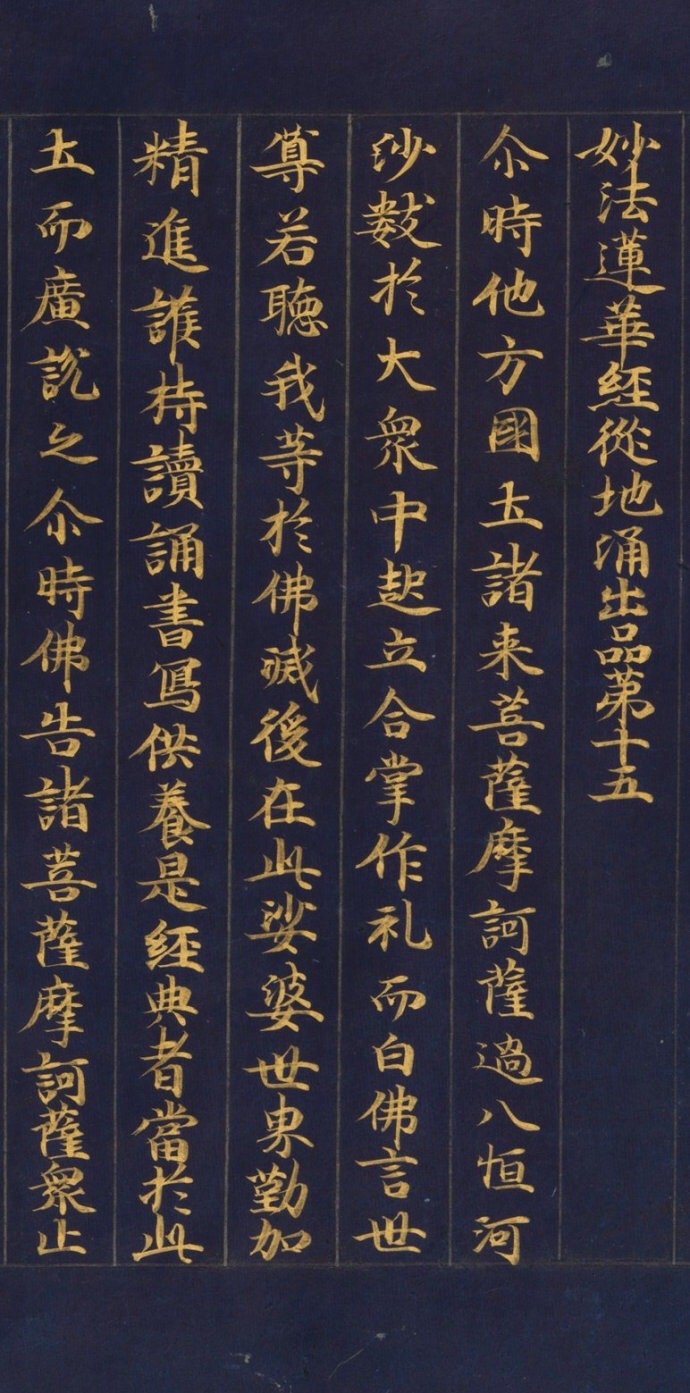 妙法蓮華経従地涌出品第十五
尒時他方國土諸来菩薩摩訶薩過八恒河
沙數於大衆中起立合掌作礼而白佛言世
尊若聴我等於佛滅後在此娑婆世界勤加
精進護持讀誦書寫供養是経典者當於此
土而廣説之尒時佛告諸菩薩摩訶薩衆止